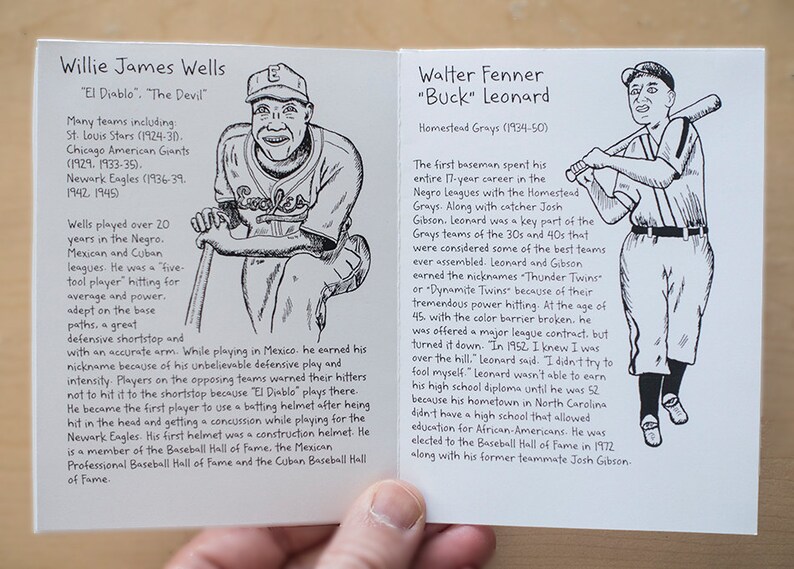 Willie James Wells
"El Diablo", "The Devil"
Many teams including:
St. Louis Stars (1924-31),
Chicago American Giants
(1929, 1933-35),
Newark Eagles (1936-39,
1942, 1945)
Wells played over 20
years in the Negro,
Mexican and Cuban
leagues. He was a "five-
tool player" hitting for
average and power,
adept on the base
paths, a great
defensive shortstop and
with an accurate arm. While playing in Mexico, he earned his
nickname because of his unbelievable defensive play and
intensity. Players on the opposing teams warned their hitters
not to hit it to the shortstop because "El Diablo" plays there.
He became the first player to use a batting helmet after being
hit in the head and getting a concussion while playing for the
Newark Eagles. His first helmet was a construction helmet. He
is a member of the Baseball Hall of Fame, the Mexican
Professional Baseball Hall of Fame and the Cuban Baseball Hall
of Fame.
E
Eagles
Walter Fenner
"Buck" Leonard
Homestead Grays (1934-50)
The first baseman spent his
entire 17-year career in the
Negro Leagues with the Homestead
Grays. Along with catcher Josh
Gibson, Leonard was a key part of the
Grays teams of the 30s and 40s that
were considered some of the best teams
ever assembled. Leonard and Gibson
earned the nicknames "Thunder Twins"
or "Dynamite Twins" because of their
tremendous power hitting. At the age of
45, with the color barrier broken, he
was offered a major league contract, but
turned it down. "In 1952, I knew I was
over the hill," Leonard said. "I didn't try to
fool myself." Leonard wasn't able to earn
his high school diploma until he was 52
because his hometown in North Carolina
didn't have a high school that allowed
education for African-Americans. He was
elected to the Baseball Hall of Fame in 1972
along with his former teammate Josh Gibson.